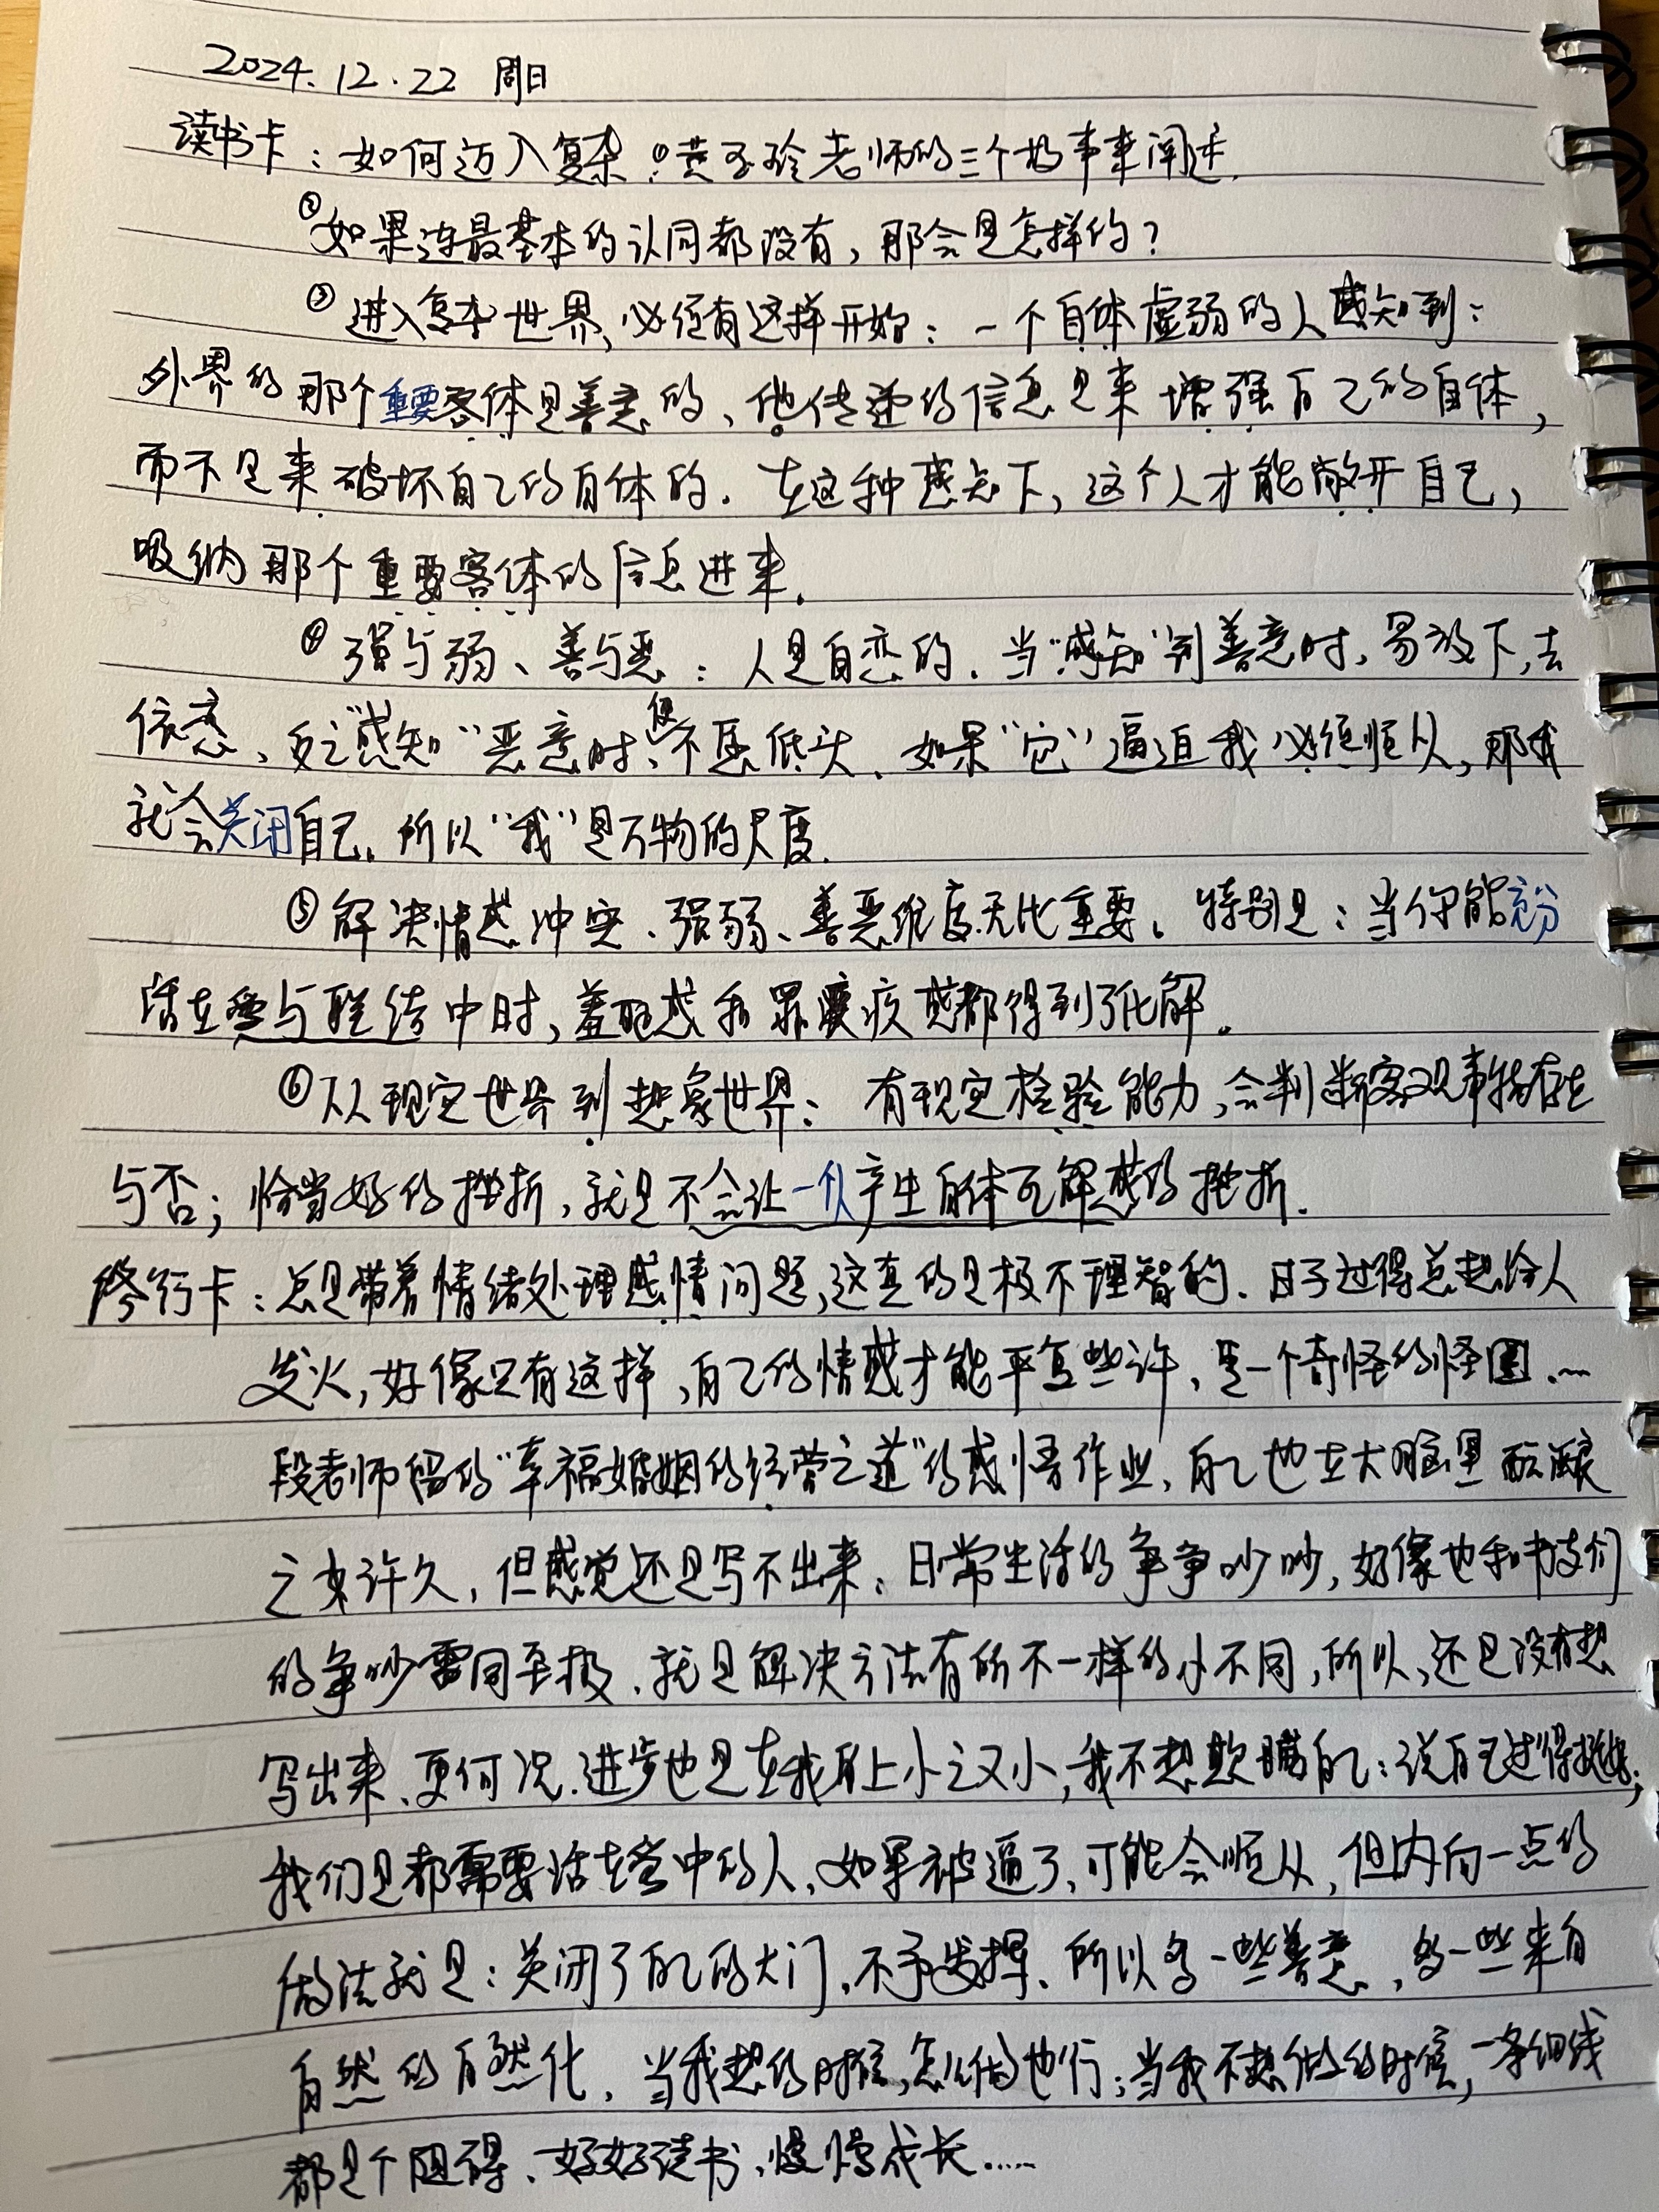 2024.12.22 周日
读书卡：如何迈入复杂？①黄玉玲老师的三个故事来阐述.
②如果连最基本的认同都没有，那会是怎样的？
③进入复杂世界，必须有这样开始：一个自体虚弱的人感知到：
外界的那个重要客体是善意的、他传递的信息是来增强自己的自体，
而不是来破坏自己的自体的. 在这种感知下，这个人才能敞开自己，
吸纳那个重要客体的信息进来.
④强与弱、善与恶：人是自恋的. 当“感知”到善意时，易放下，去
依恋、反之“感知”恶意时，便不愿低头、如果“它”逼迫我必须顺从，那我
就会关闭自己. 所以“我”是万物的尺度.
⑤解决情感冲突、强弱、善恶维度无比重要。特别是：当你能充分
活在爱与联结中时，羞耻感和罪疚感都得到了化解。
⑥从现实世界到想象世界： 有现实检验能力，会判断客观事物存在
与否；恰当好的挫折，就是不会让一个人产生自体瓦解感的挫折.
修行卡：总是带着情绪处理感情问题，这真的是极不理智的. 日子过得总想给人
发火，好像只有这样，自己的情感才能平复些许，是一个奇怪的怪圈.…
段老师留的“幸福婚姻的经营之道”的感悟作业，自己也在大脑里酝酿
之久许久，但感觉还是写不出来，日常生活的争争吵吵，好像也和书友们
的争吵雷同至极. 就是解决方法有所不一样的小不同，所以，还是没有想
写出来、更何况. 进步也是在我身上小之又小，我不想欺瞒自己：说自己过得挺好；
我们是都需要活在爱中的人，如果被逼了，可能会顺从，但内向一点的
做法就是：关闭了自己的大门，不予发挥、所以多一些善意，多一些来自
自然的自然化，当我想的时候，怎么做也行；当我不想做的时候，一条细线
都是个阻碍、好好读书，慢慢成长……